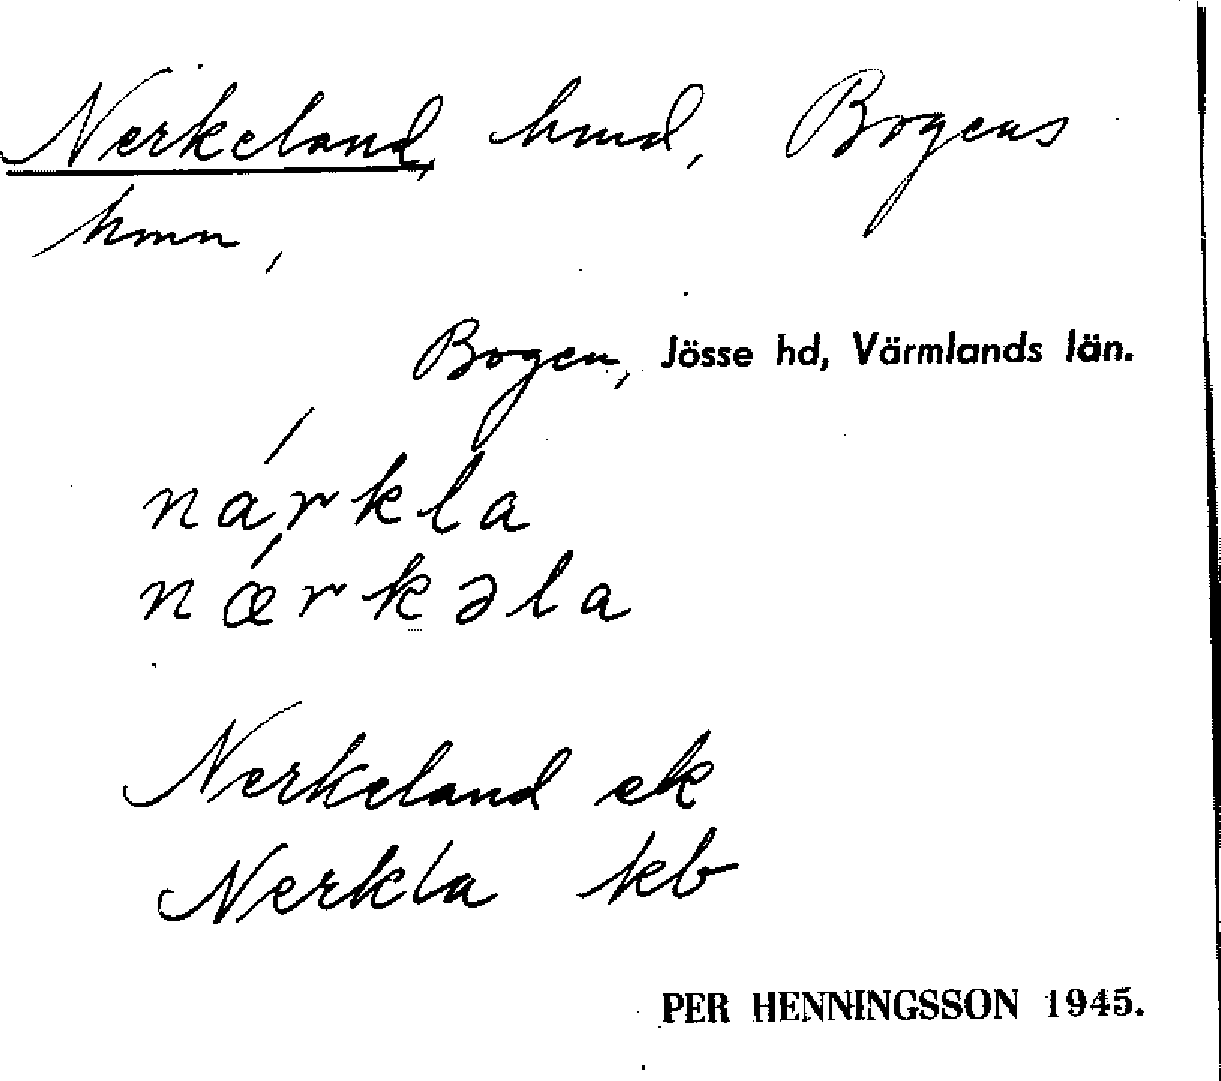 Nerkeland, hmd, Bogens
hmn,
Bogen, Jösse hd, Värmlands län.
nárkla
nǽrkəla
Nerkeland ek
Nerkla kb
PER HENNINGSSON 1945.